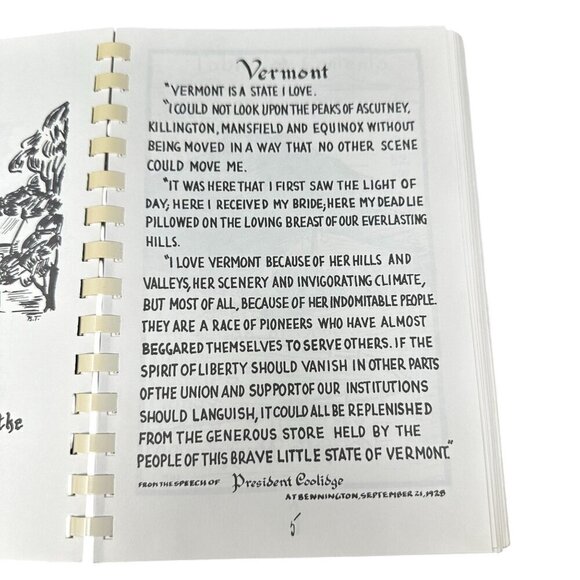 Vermont
"VERMONT IS A STATE I LOVE.
"I COULD NOT LOOK UPON THE PEAKS OF ASCUTNEY,
KILLINGTON, MANSFIELD AND EQUINOX WITHOUT
BEING MOVED IN A WAY THAT NO OTHER SCENE
COULD MOVE ME.
"IT WAS HERE THAT I FIRST SAW THE LIGHT OF
DAY; HERE I RECEIVED MY BRIDE; HERE MY DEAD LIE
PILLOWED ON THE LOVING BREAST OF OUR EVERLASTING
HILLS.
"I LOVE VERMONT BECAUSE OF HER HILLS AND
VALLEYS, HER SCENERY AND INVIGORATING CLIMATE,
BUT MOST OF ALL, BECAUSE OF HER INDOMITABLE PEOPLE.
THEY ARE A RACE OF PIONEERS WHO HAVE ALMOST
BEGGARED THEMSELVES TO SERVE OTHERS. IF THE
SPIRIT OF LIBERTY SHOULD VANISH IN OTHER PARTS
OF THE UNION AND SUPPORT OF OUR INSTITUTIONS
SHOULD LANGUISH, IT COULD ALL BE REPLENISHED
FROM THE GENEROUS STORE HELD BY THE
PEOPLE OF THIS BRAVE LITTLE STATE OF VERMONT."
FROM THE SPEECH OF President Coolidge
AT BENNINGTON, SEPTEMBER 21, 1928
5
the